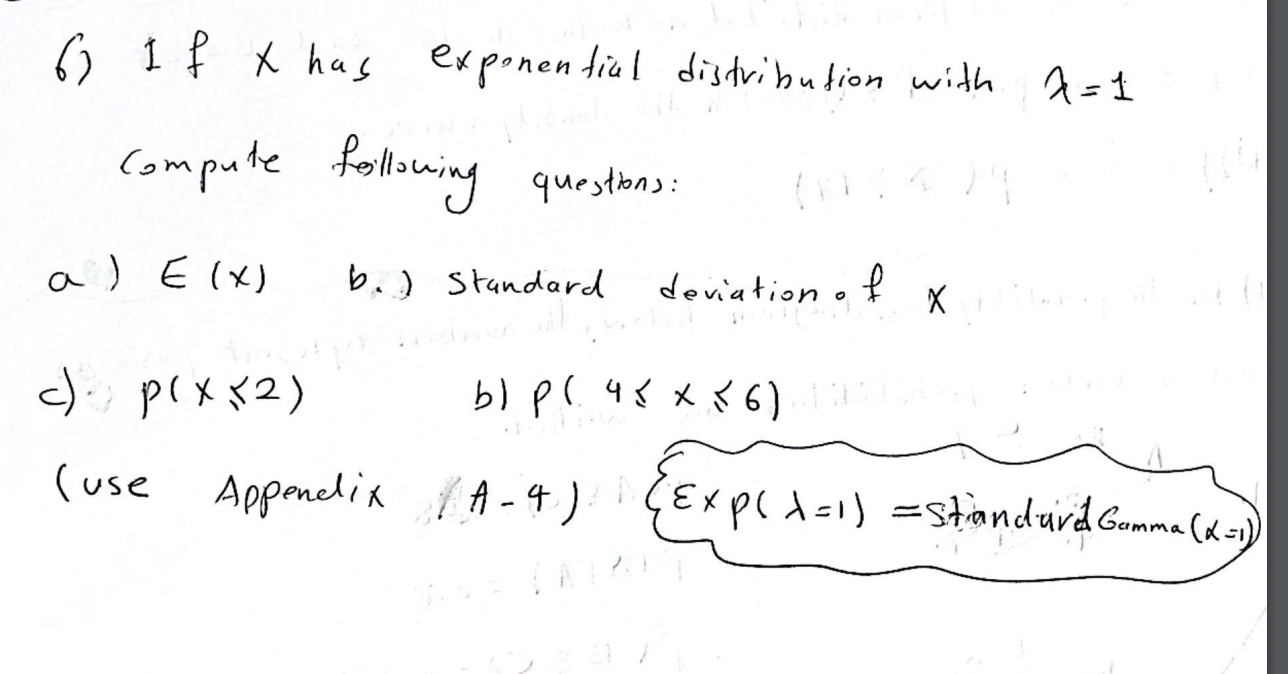 6) If X has exponential distribution with λ=1
Compute following questions:
a) E(X) b.) Standard deviation of X
c) P(X ≤ 2) b) P( 4 ≤ X ≤ 6)
(use Appendix A-4) {Exp(λ=1) = Standard Gamma (α=1)